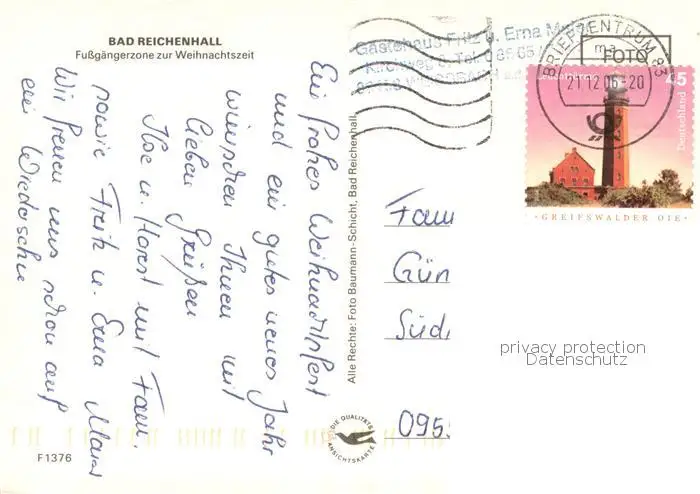 BAD REICHENHALL
Fußgängerzone zur Weihnachtszeit
Ein frohes Weihnachtsfest
und ein gutes neues Jahr
wünschen Ihnen mit
lieben Grüßen
Ilse u. Horst mit Fam.
sowie Fritz u. Erna Maier
Wir freuen uns schon auf
ein Wiedersehn
F1376
Alle Rechte: Foto Baumann-Schicht, Bad Reichenhall
DIE QUALITÄTS
ANSICHTSKARTE
Gästehaus Fritz u. Erna
Kirchweg 6, Tel.
BRIEFZENTRUM 83
ma
21.12.06-20
FOTO
45
Deutschland
·GREIFSWALDER OIE·
Fam
Gün
Süd
095
privacy protection
Datenschutz